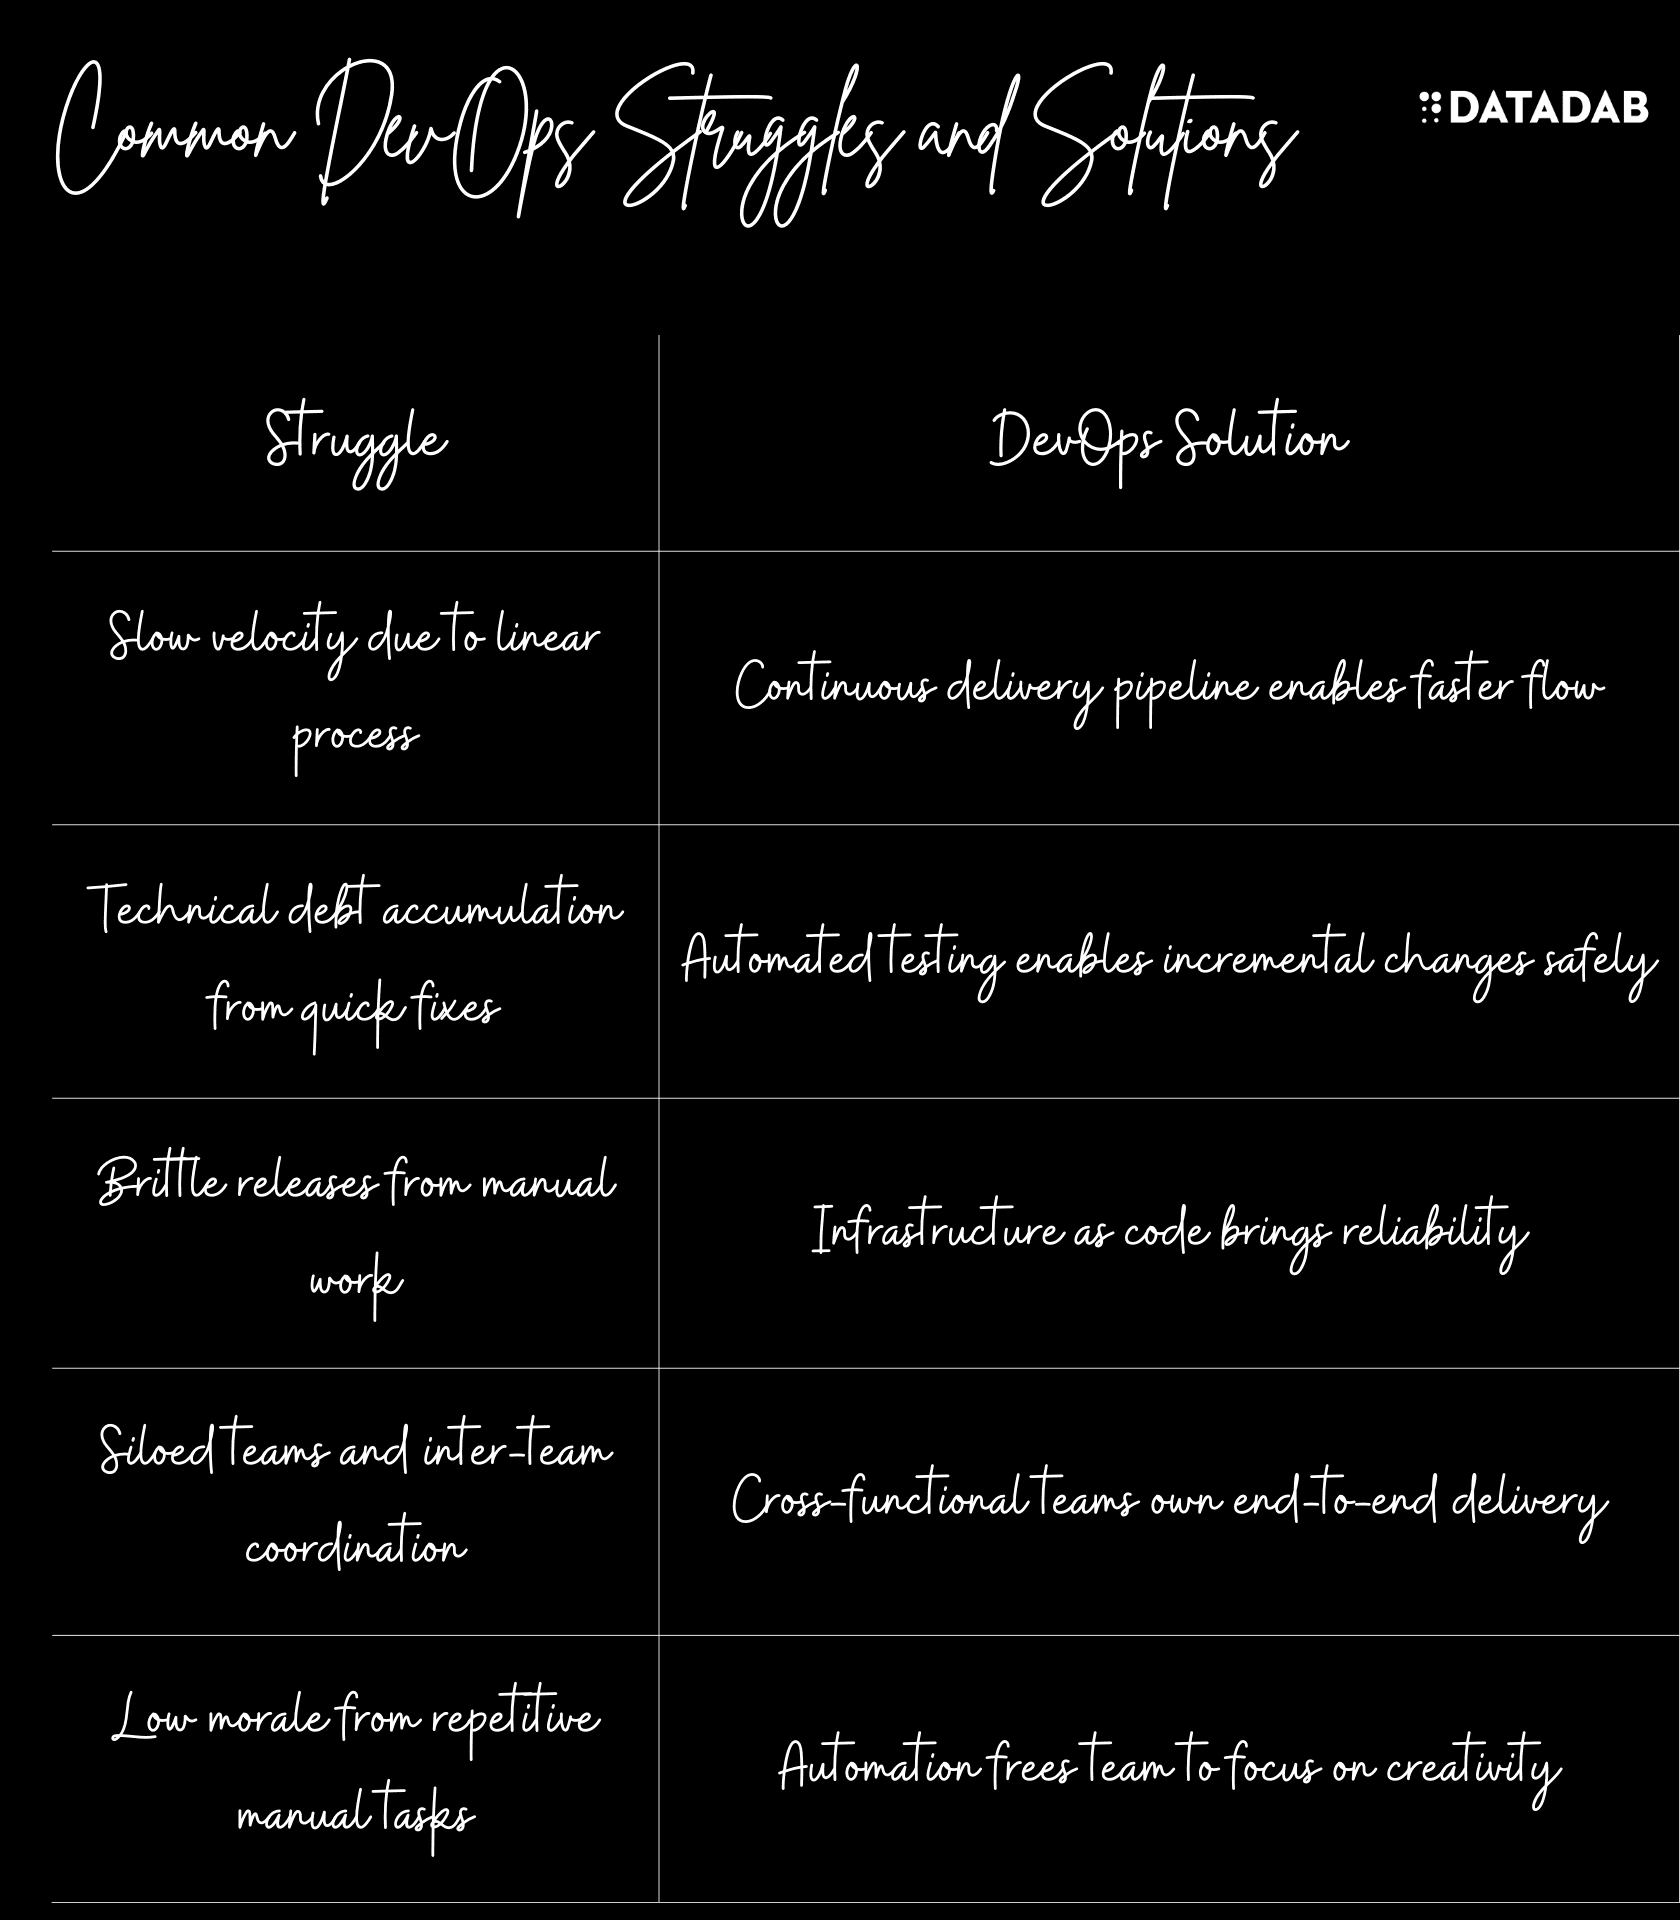 Common DevOps Struggles and Solutions
DATADAB
Struggle
DevOps Solution
Slow velocity due to linear
process
Continuous delivery pipeline enables faster flow
Technical debt accumulation
from quick fixes
Automated testing enables incremental changes safely
Brittle releases from manual
work
Infrastructure as code brings reliability
Siloed teams and inter-team
coordination
Cross-functional teams own end-to-end delivery
Low morale from repetitive
manual tasks
Automation frees team to focus on creativity